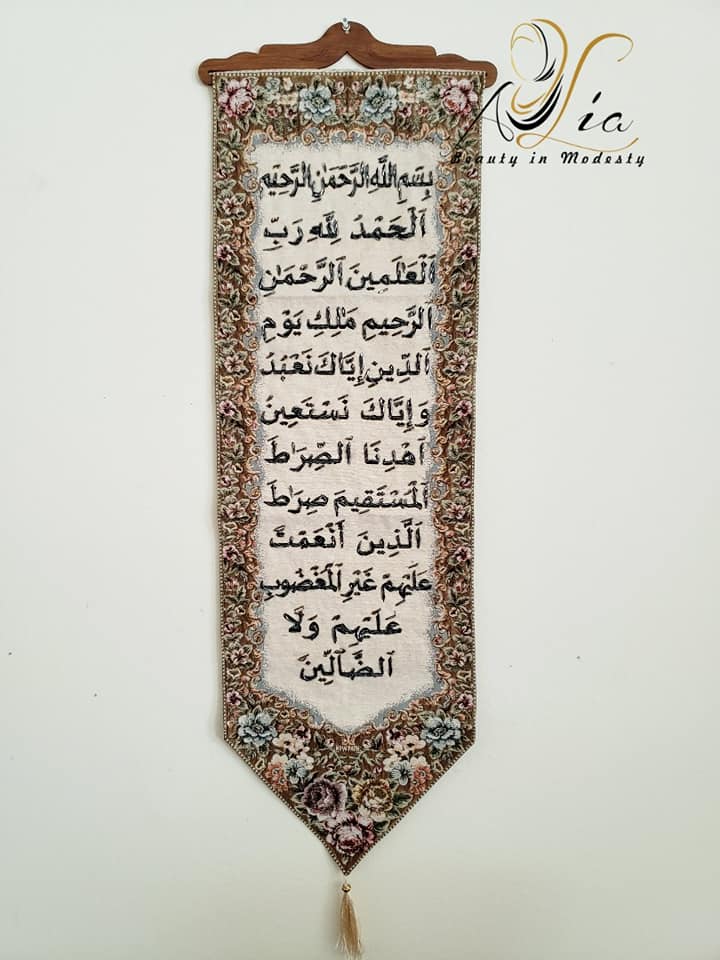 Alia
Beauty in Modesty
بِسْمِ اللَّهِ الرَّحْمَٰنِ الرَّحِيمِ
ٱلْحَمْدُ لِلَّهِ رَبِّ
ٱلْعَٰلَمِينَ ٱلرَّحْمَٰنِ
ٱلرَّحِيمِ مَٰلِكِ يَوْمِ
ٱلدِّينِ إِيَّاكَ نَعْبُدُ
وَإِيَّاكَ نَسْتَعِينُ
ٱهْدِنَا ٱلصِّرَٰطَ
ٱلْمُسْتَقِيمَ صِرَٰطَ
ٱلَّذِينَ أَنْعَمْتَ
عَلَيْهِمْ غَيْرِ ٱلْمَغْضُوبِ
عَلَيْهِمْ وَلَا
ٱلضَّآلِّينَ